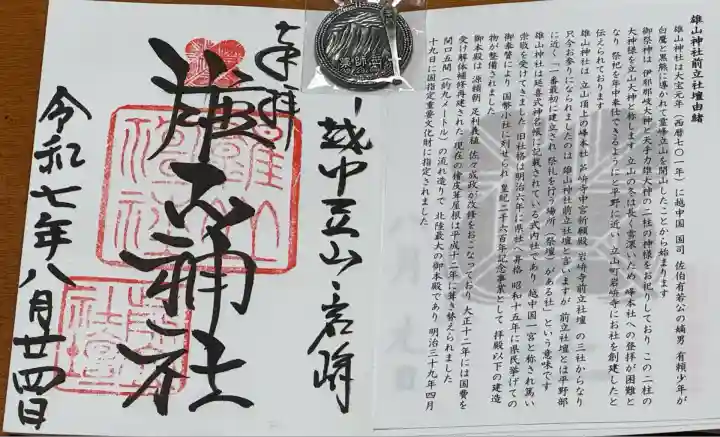 雄山神社前立社壇由緒
雄山神社は大宝元年（西暦七〇一年）に越中国 国司 佐伯有若公の嫡男 有頼少年が
白鷹と黒熊に導かれて霊峰立山を開山したことから始まります
御祭神は 伊耶那岐大神と天手力雄大神の二柱の神様をお祀りしており この二柱の
大神様を立山大神と称します 立山の冬は長く雪深いため 峰本社への登拝が困難と
なり 祭祀を年中奉仕できるようにと平野に近い 立山町岩峅寺にお社を創建したと
伝えられております
雄山神社は 立山頂上の峰本社 芦峅寺中宮祈願殿 岩峅寺前立社壇 の三社からなり
只今お参りになられましたのは 雄山神社前立社壇と言いますが 前立社壇とは平野部
に近く「一番最初に建立され 祭礼を行う場所（祭壇）がある社」という意味です
雄山神社は延喜式神名帳に記載されている式内社であり 越中国一宮と称され篤い
崇敬を受けてきました 旧社格は明治六年に県社へ昇格 昭和十五年に県民挙げての
御奉賛により 国幣小社に列せられ 皇紀二千六百年記念事業として 拝殿以下の建造
物が整備されました
御本殿は 源頼朝 足利義稙 佐々成政が改修をおこなっており 大正十二年には国費を
受け解体補修再建された 現在の檜皮葺屋根は平成十二年に葺き替えられました
間口五間（約九メートル）の流れ造りで 北陸最大の御本殿であり 明治三十九年四月
十九日に国指定重要文化財に指定されました
越中立山岩峅
奉拝
雄山神社
雄山神社
前立社壇
令和七年八月廿四日